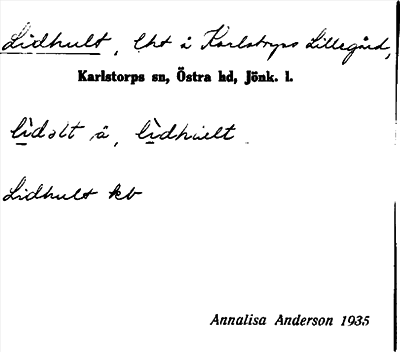 Lidhult, lht å Karlstorps Lillegård,
Karlstorps sn, Östra hd, Jönk. l.
lìdəlt å, lìdhuelt
Lidhult kb
Annalisa Anderson 1935